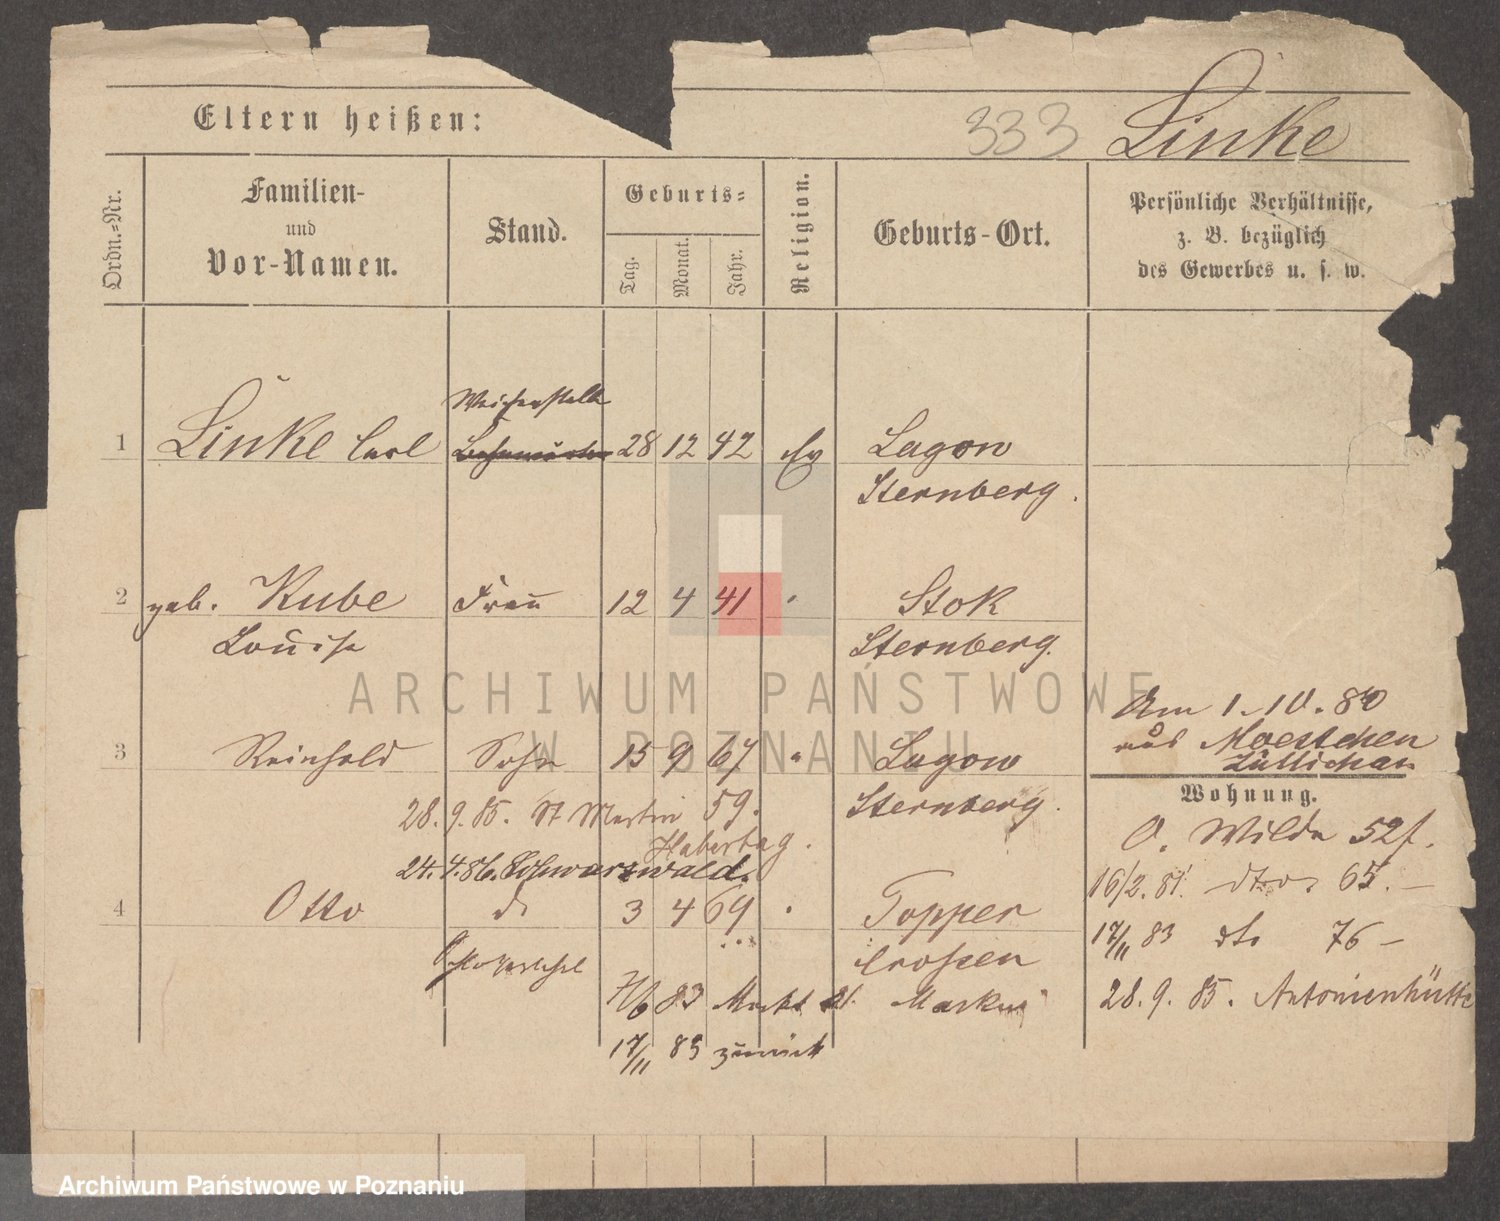 Eltern heißen:
333 Linke
Ordn.-Nr.
Familien-
und
Vor-Namen.
Stand.
Geburts-
Tag.
Monat.
Jahr.
Religion.
Geburts-Ort.
Persönliche Verhältnisse,
z. B. bezüglich
des Gewerbes u. s. w.
Weichenstelle
1 Linke Carl 28 12 42 Ev Lagow
Sternberg.
2 geb. Kube Frau 12 4 41 Stok
Louise Sternberg.
Am 1.10.80
aus Moestchen
Züllichau
3 Reinhold Sohn 15 9 67 " Lagow
Sternberg.
Wohnung.
28. 9. 85. St Martin 59.
O. Wilda 52f.
24. 4. 86. Schwarzwald.
16/2. 81. dto 65. —
4 Otto d 3 4 69 Topper
Crossen
17/11 83 dto 76 —
7/6 83 Markt
28. 9. 85. Antonienhütte
17/11 83 zurück
ARCHIWUM PAŃSTWOWE
W POZNANIU
Archiwum Państwowe w Poznaniu